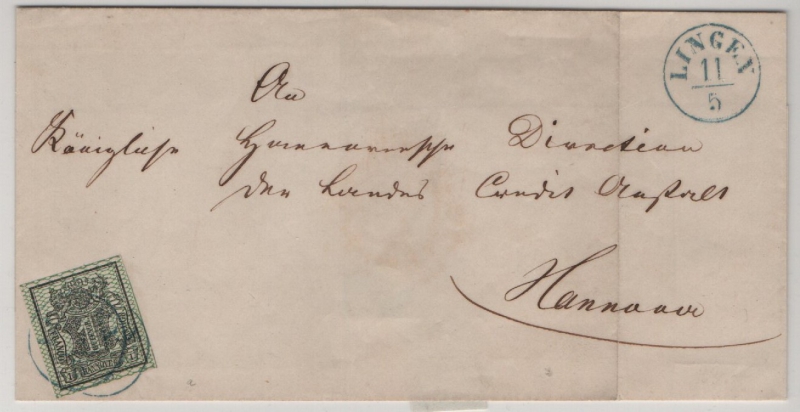 LINGEN
11
5
An
Königliche Hannoversche Direction
der Landes Credit Anstalt
Hannover
1